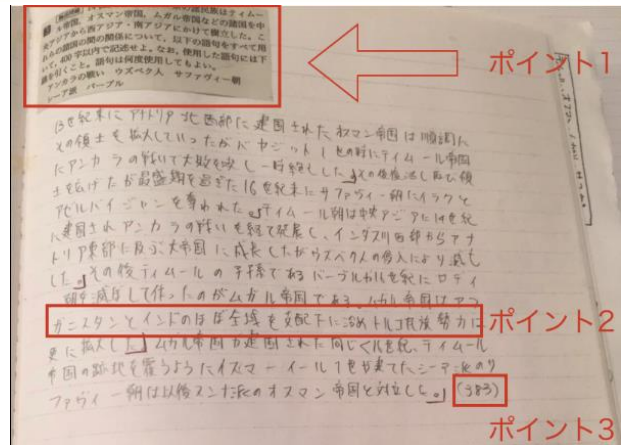 の諸民族はティムー
ル帝国、オスマン帝国、ムガル帝国などの諸国を中
央アジアから西アジア・南アジアにかけて樹立した。こ
れらの諸国の間の関係について、以下の語句をすべて用
いて、400字以内で記述せよ。なお、使用した語句には下
線を引くこと。語句は何度使用してもよい。
アンカラの戦い ウズベク人 サファヴィー朝
シーア派 バーブル
ポイント1
13世紀末にアナトリア北西部に建国されたオスマン帝国は順調に
その領土を拡大していったがバヤジット1世の時にティムール帝国
にアンカラの戦いで大敗を喫し一時絶した。その後復活し再び領
土を広げたが最盛期を過ぎた16世紀末にサファヴィー朝にイラクと
アゼルバイジャンを奪われた。ティムール朝は中央アジアに14世紀
に建国されアンカラの戦いを経て発展し、インダス川西部からアナ
トリア東部に及ぶ大帝国に成長したがウズベク人の侵入により滅亡
した。その後ティムールの子孫であるバーブルが16世紀にロディ
朝を滅ぼして作ったのがムガル帝国である。ムガル帝国はアフ
ガニスタンとインドのほぼ全域を支配下に治めトルコ民族勢力は
ポイント2
更に拡大した。ムガル帝国が建国された同じく16世紀、ティムール
帝国の跡地を覆うようにイスマーイール1世が建てたシーア派のサ
ファヴィー朝は以後スンナ派のオスマン帝国と対立した。(383)
ポイント3